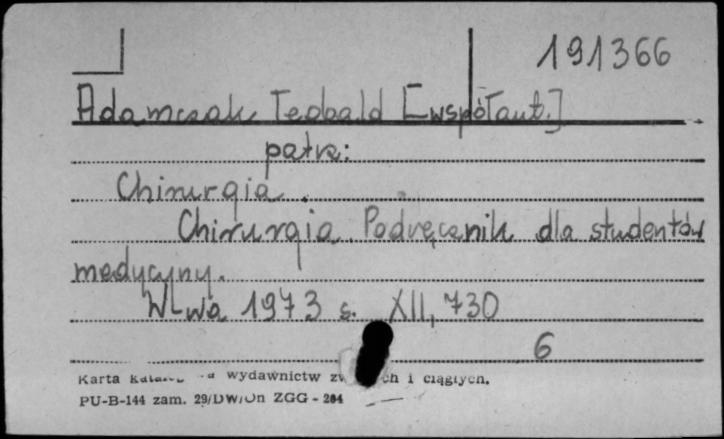 191366
Adamczak Teobald [współaut.]
patrz:
Chirurgia.
Chirurgia. Podręcznik dla studentów
medycyny.
W-wa 1973 s. XII, 730
6
Karta wydawnictw ch i ciągłych.
PU-B-144 zam. 29/DW/Dn ZGG - 284